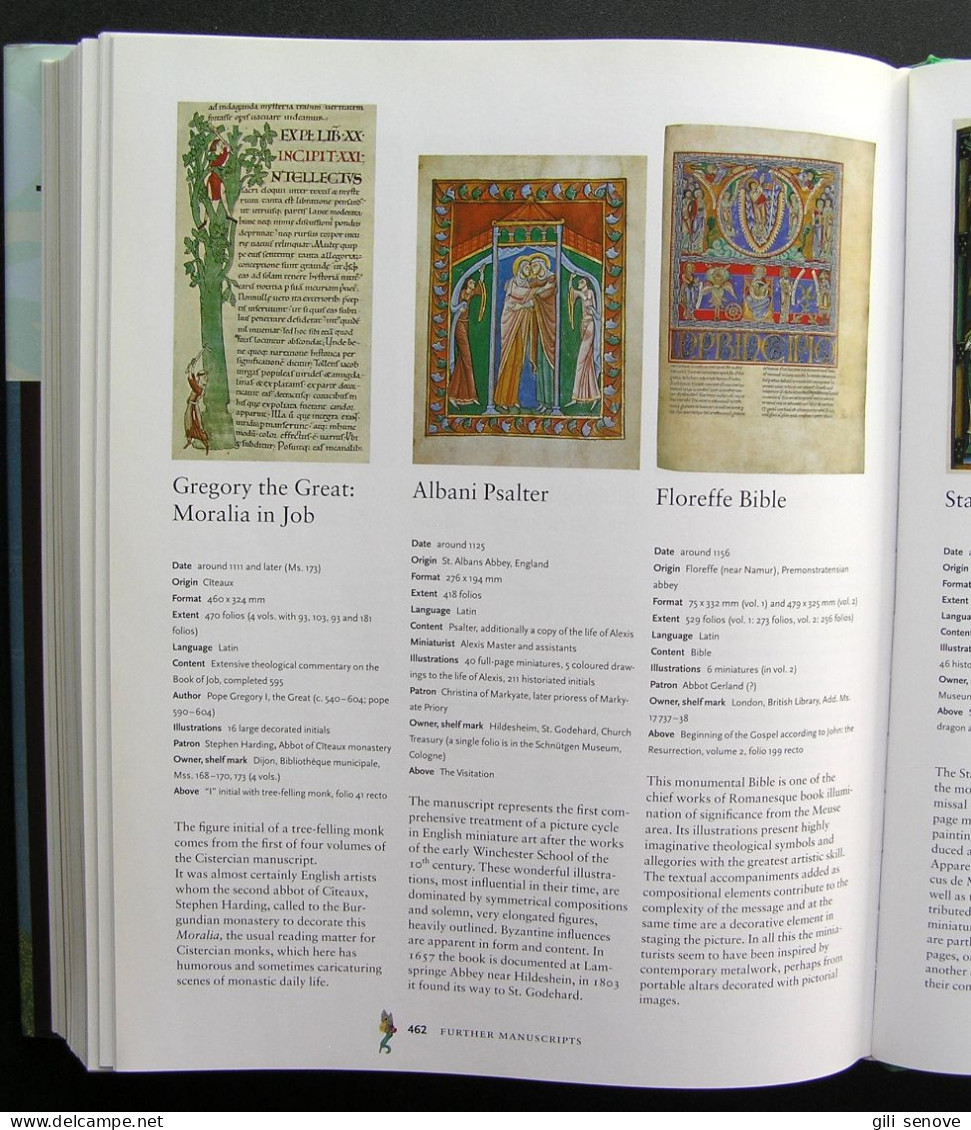 EXPL LIB XX
INCIPIT XXI
NTELLECTVS
Gregory the Great:
Moralia in Job
Date around 1111 and later (Ms. 173)
Origin Cîteaux
Format 460 x 324 mm
Extent 470 folios (4 vols. with 93, 103, 93 and 181
folios)
Language Latin
Content Extensive theological commentary on the
Book of Job, completed 595
Author Pope Gregory I, the Great (c. 540–604; pope
590–604)
Illustrations 16 large decorated initials
Patron Stephen Harding, Abbot of Cîteaux monastery
Owner, shelf mark Dijon, Bibliothèque municipale,
Mss. 168–170, 173 (4 vols.)
Above “I” initial with tree-felling monk, folio 41 recto
The figure initial of a tree-felling monk
comes from the first of four volumes of
the Cistercian manuscript.
It was almost certainly English artists
whom the second abbot of Cîteaux,
Stephen Harding, called to the Bur-
gundian monastery to decorate this
Moralia, the usual reading matter for
Cistercian monks, which here has
humorous and sometimes caricaturing
scenes of monastic daily life.
Albani Psalter
Date around 1125
Origin St. Albans Abbey, England
Format 276 x 194 mm
Extent 418 folios
Language Latin
Content Psalter, additionally a copy of the life of Alexis
Miniaturist Alexis Master and assistants
Illustrations 40 full-page miniatures, 5 coloured draw-
ings to the life of Alexis, 211 historiated initials
Patron Christina of Markyate, later prioress of Marky-
ate Priory
Owner, shelf mark Hildesheim, St. Godehard, Church
Treasury (a single folio is in the Schnütgen Museum,
Cologne)
Above The Visitation
The manuscript represents the first com-
prehensive treatment of a picture cycle
in English miniature art after the works
of the early Winchester School of the
10th century. These wonderful illustra-
tions, most influential in their time, are
dominated by symmetrical compositions
and solemn, very elongated figures,
heavily outlined. Byzantine influences
are apparent in form and content. In
1657 the book is documented at Lam-
springe Abbey near Hildeshein, in 1803
it found its way to St. Godehard.
Floreffe Bible
Date around 1156
Origin Floreffe (near Namur), Premonstratensian
abbey
Format 75 x 332 mm (vol. 1) and 479 x 325 mm (vol. 2)
Extent 529 folios (vol. 1: 273 folios, vol. 2: 256 folios)
Language Latin
Content Bible
Illustrations 6 miniatures (in vol. 2)
Patron Abbot Gerland (?)
Owner, shelf mark London, British Library, Add. Ms.
17737–38
Above Beginning of the Gospel according to John: the
Resurrection, volume 2, folio 199 recto
This monumental Bible is one of the
chief works of Romanesque book illumi-
nation of significance from the Meuse
area. Its illustrations present highly
imaginative theological symbols and
allegories with the greatest artistic skill.
The textual accompaniments added as
compositional elements contribute to the
complexity of the message and at the
same time are a decorative element in
staging the picture. In all this the minia-
turists seem to have been inspired by
contemporary metalwork, perhaps from
portable altars decorated with pictorial
images.
Sta
Date
Origin
Format
Extent
Langua
Conten
Illustrat
46 histo
Owner,
Museum
Above
dragon a
The Sta
the mo
missal
page m
paintin
duced a
Appare
cus de N
well as t
tributed
miniatur
are part
pages, o
another
their con
462 FURTHER MANUSCRIPTS
gili senove